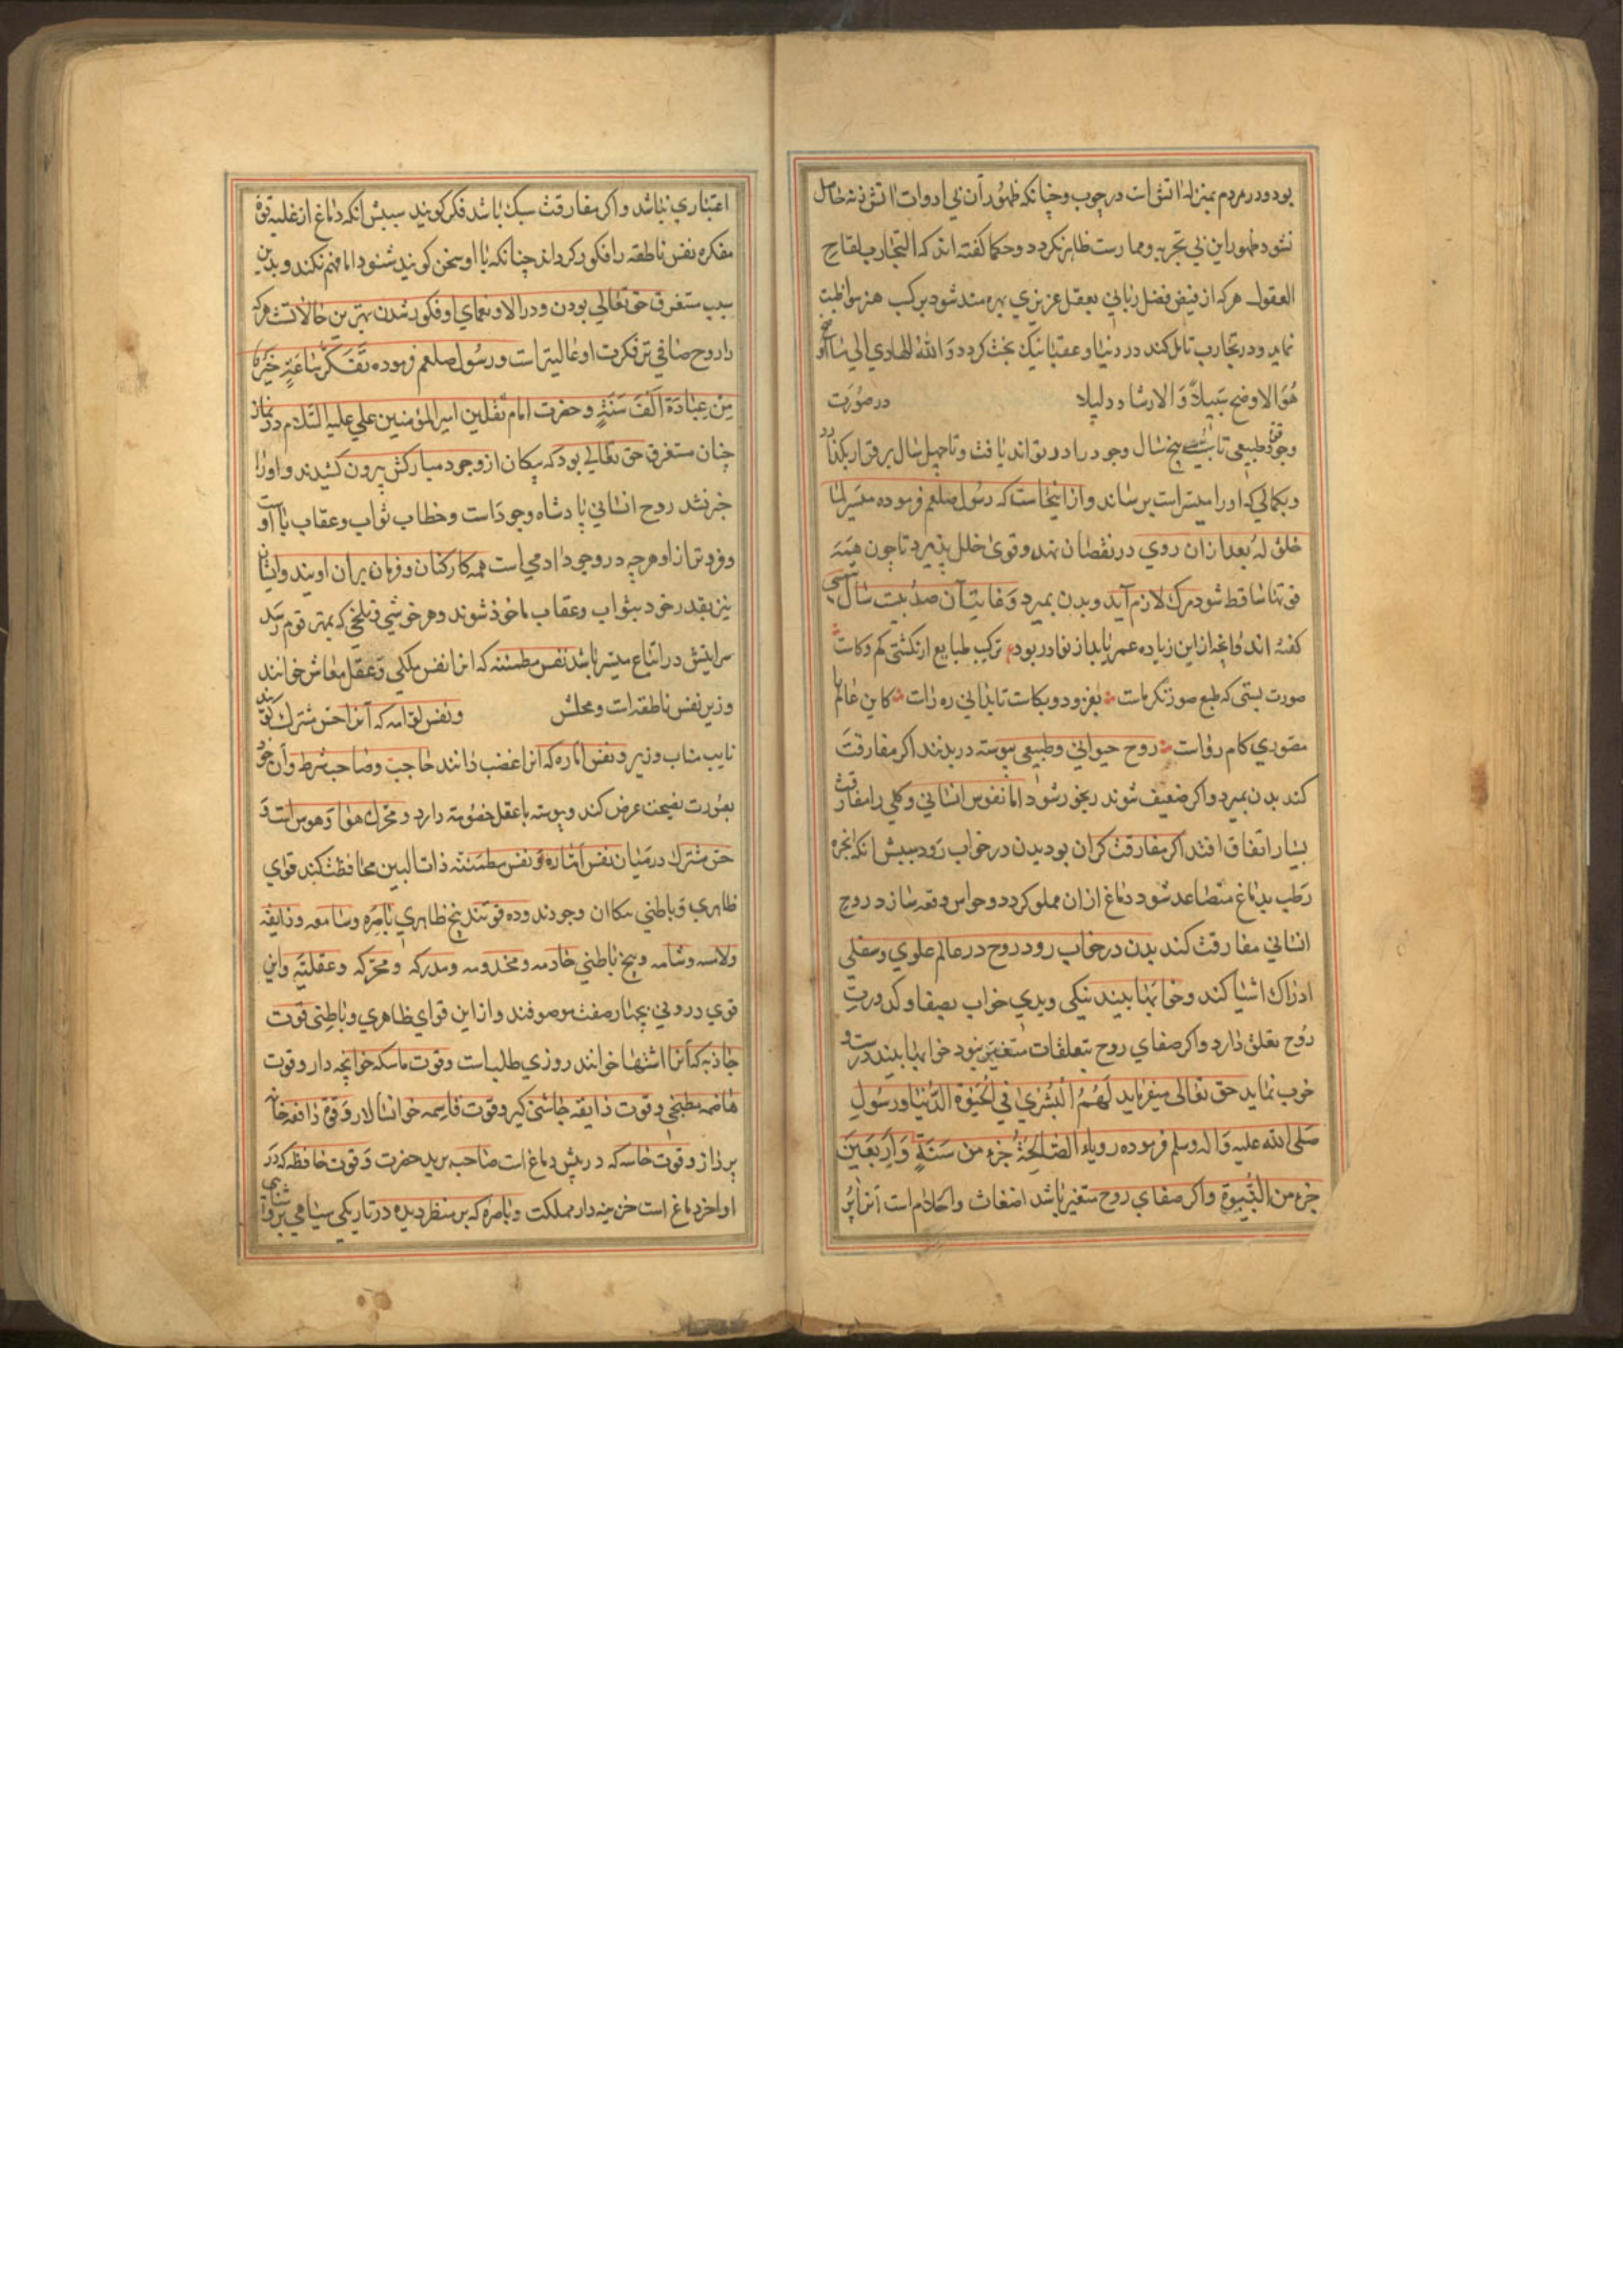 بود و در مردم بمنزله اتش است در چوب و چنانکه ظهور آن بی ادوات اتش زنه حاصل
نشود ظهور این بی تجربه و ممارست ظاهر نکردد و حکما کفته اند که التجارب لقاح
العقول هر که از فیض فضل ربانی بعقل عزیزی بهره مند شود بر کسب هنر مواظبت
نماید و در تجارب تامل کند در دنیا و عقبا نیک بخت کردد وَاللهُ الهادی الی ما
هُوَ الاوضح سَبیلاً وَ الارشاد دلیلا در صورت
وجود طبیعی تا بیست پنج سال وجود را مدد تواند یافت و تا چهل سال برقرار بکذارد
و بکمالی که او را میسر است برساند و از اینجاست که رسول صلعم فرموده میسر لما
خلق له بعد از ان روی در نقصان نهد و قوی خلل پذیرد تا چون همه
قوتها ساقط شود مرک لازم آید و بدن بمیرد و غایت آن صد بیست سال شمسی
کفته اند و انچه از این زیاده عمر یابد از نوادر بود ترکیب طبایع ار نکشتی کم و کاست
صورت بستی که طبع صورتکر ماست بفزود و بکاست تا بدانی ره راست کاین عالم را
مصوری کام رواست روح حیوانی و طبیعی پیوسته در بدنند اکر مفارقت
کنند بدن بمیرد و اکر ضعیف شوند رنجور شود اما نفوس انسانی و کلی را مفارقت
بسیار اتفاق افتد اکر مفارقت کران بود بدن در خواب رود سببش انکه ابخره
رطب بدماغ متصاعد شود دماغ از ان مملو کردد و حواس وقعه سازد روح
انسانی مفارقت کند بدن در خواب رود روح در عالم علوی و سفلی
ادراک اشیا کند و خوابها بیند نیکی و بدی خواب بصفا و کدورت
روح تعلق دارد و اکر صفای روح بتعلقات متغیر نبود خوابها بیند درست و
خوب نماید حق تعالی میفرماید لَهُمُ الْبُشْریٰ فی الْحَیٰوةِ الدُّنْیا و رسول
صلی الله علیه و اله و سلم فرموده رویاء الصالحة جزء من ستة و اربعین
جزء من النبوة و اکر صفای روح متغیر باشد اضغاث و احلام است آنرا بر
اعتباری نباشد و اکر مفارقت سبک باشد فکر کویند سببش انکه دماغ از غلبه قوة
مفکره نفس ناطقه را فکور کرداند چنانکه با او سخن کویند شنود اما فهم نکند و بدین
سبب مستغرق حق تعالی بودن و در الاء و نعمای او فکور شدن بهترین حالاتست هر که
را روح صافی تر فکرت او عالیتر است و رسول صلعم فرموده تَفَکُّر ساعَةٍ خَیْرٌ
مِن عِبادَة اَلْفَ سَنَةٍ و حضرت امام ثقلین امیر المؤمنین علی علیه السلام در نماز
چنان مستغرق حق تعالی بود که پیکان از وجود مبارکش بیرون کشیدند و او را
خبر نشد روح انسانی پادشاه وجود است و خطاب ثواب و عقاب با اوست
و فروتر از او هرچه در وجود ادمی است همه کارکنان و فرمان بران اویند و ایشان
نیز بقدر خود بثواب و عقاب ماخوذ شوند و هر خوشی و تلخی که بمهتر قوم رسد
سرایتش در اتباع میسر باشد نفس مطمئنه که انرا نفس ملکی و عقل معاش خوانند
وزیر نفس ناطقه است و محلش و نفس لوامه که آنرا حس مشترک کویند
نایب مناب وزیر و نفس اماره که انرا غضب دانند حاجبت و صاحب شرط و آن خود
بصورت نصیحت عرض کند و پیوسته با عقل خصومت دارد و محرک هوا و هوس است و
حس مشترک در میان نفس اماره و نفس مطمئنه ذات البین محافظت کند قوای
ظاهری و باطنی سکان وجودند و ده قوتند پنج ظاهری باصره و سامعه و ذایقه
و لامسه و شامه و پنج باطنی خادمه و مخدومه و مدرکه و محرکه و عقلیه و این
قوی درونی بچهار صفت موصوفند و از این قوای ظاهری و باطنی قوت
جاذبه که آنرا اشتها خوانند روزی طلب است و قوت ماسکه خوانچه دار و قوت
هاضمه مطبخی و قوت ذایقه چاشنی کیر و قوت قاسمه خوانسالار و قوة دافعه خانه
پرداز و قوت خاسه که در پیش دماغ است صاحب برید حضرت و قوت حافظه که در
اواخر دماغ است خزینه دار مملکت و باصره که بر منظر دیده در تاریکی سیاهی